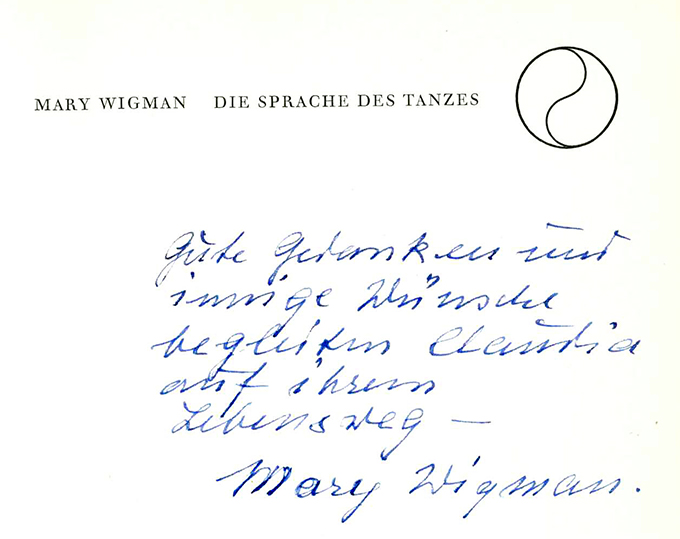 MARY WIGMAN DIE SPRACHE DES TANZES
Gute Gedanken und
innige Wünsche
begleiten Claudia
auf ihrem
Lebensweg –
Mary Wigman.